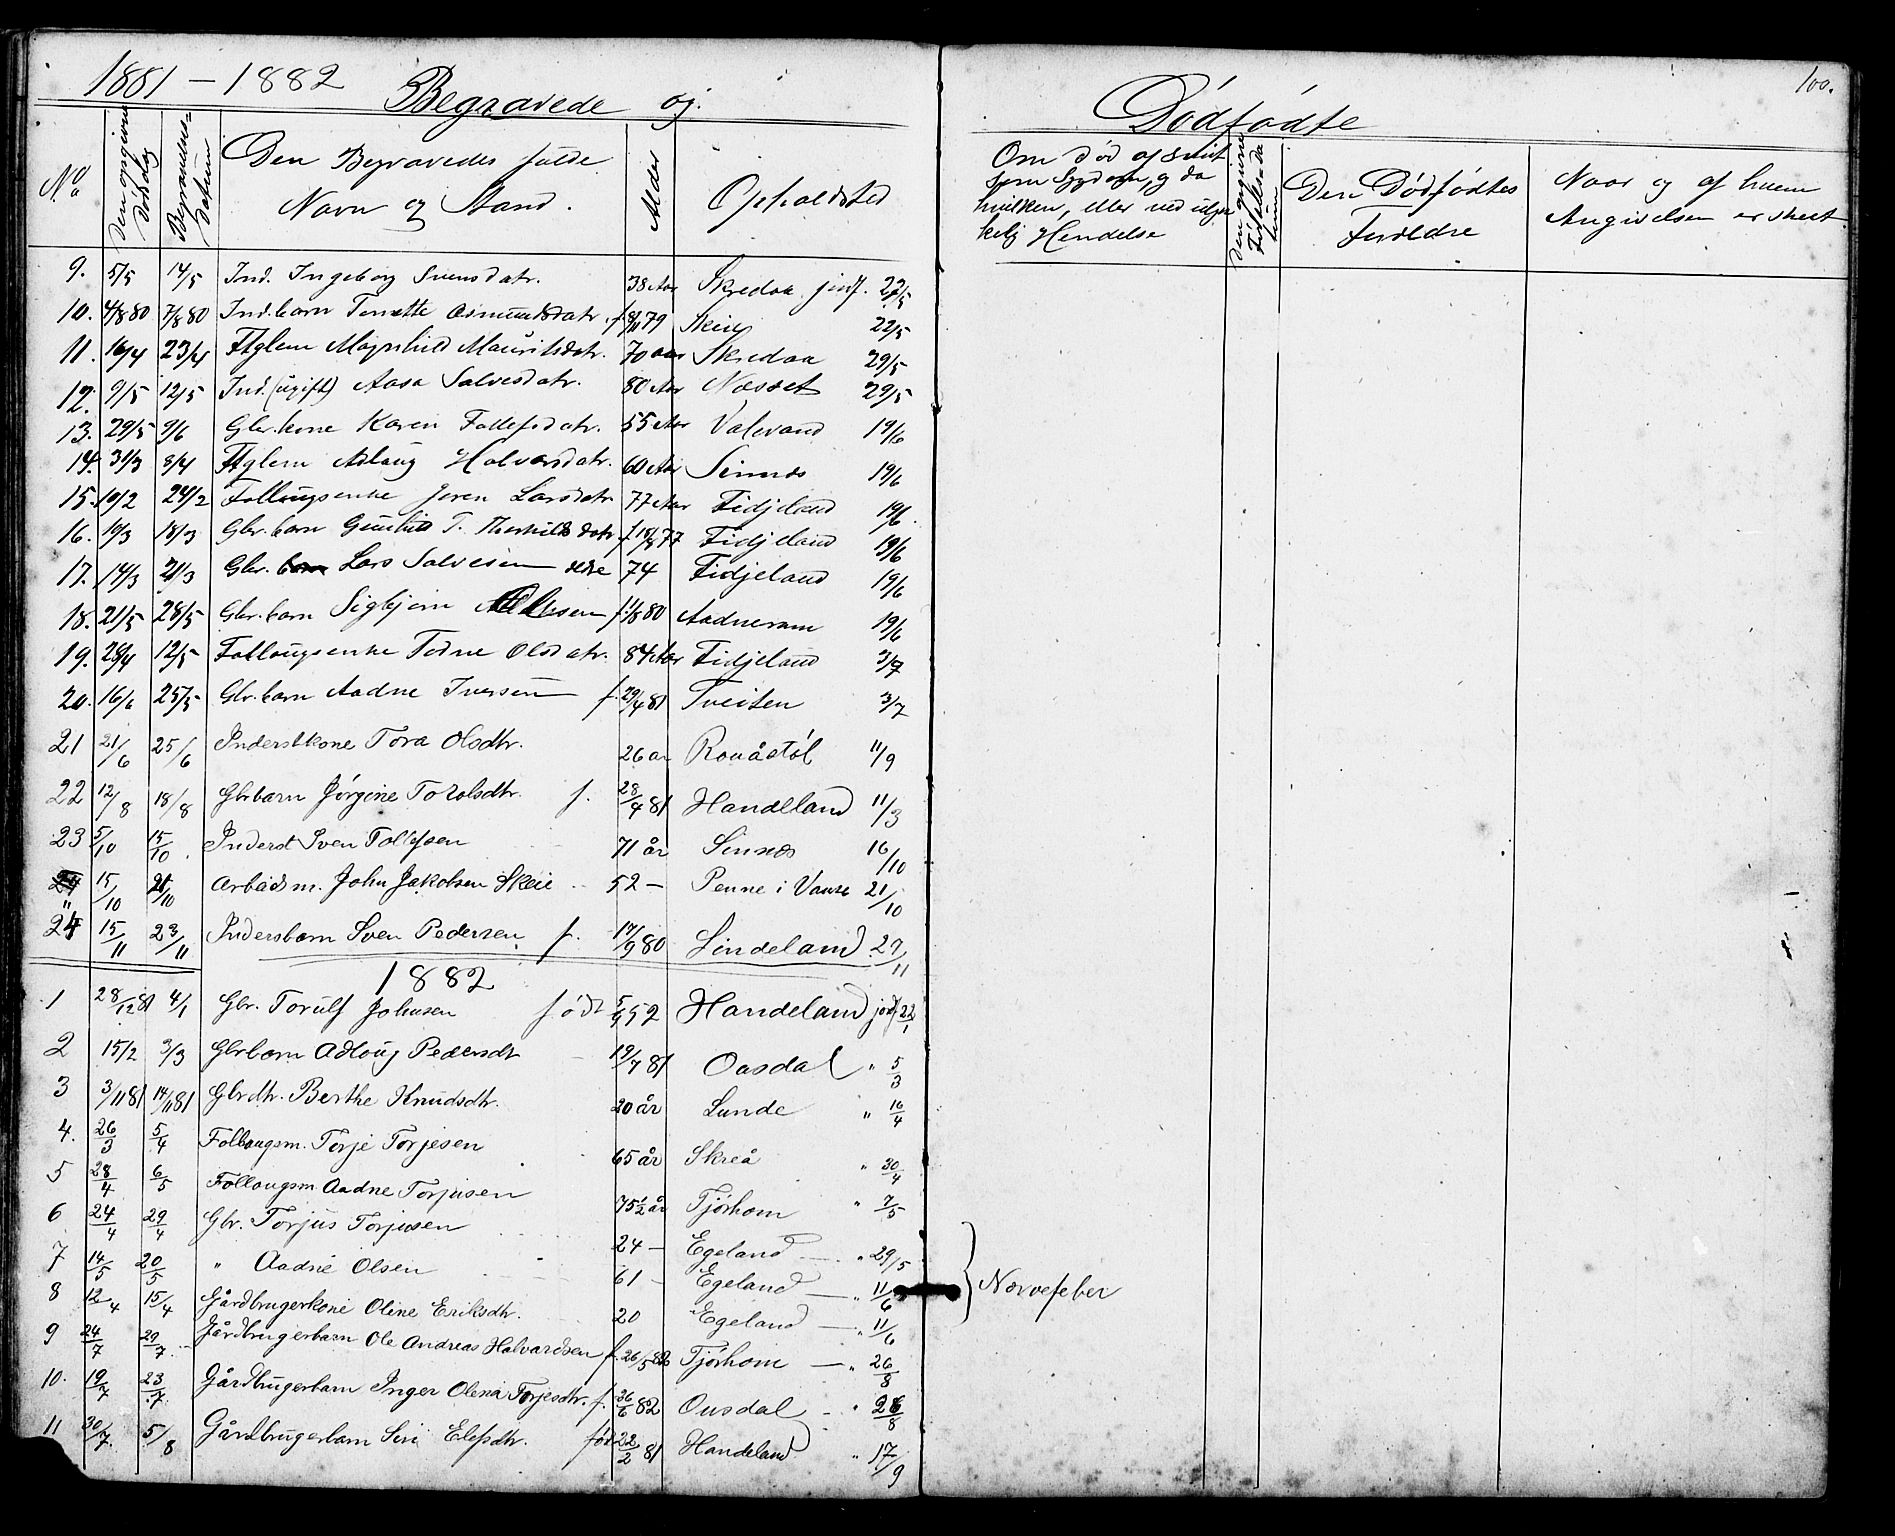 1881 – 1882
Begravede og
No. Den opgivne Dödsdag Begravelses= Datum Den Begravedes fulde Navn og Stand. Alder Opholdsted
9. 5/5 14/5 Ind. Ingeborg Svensdatr. 38 Aar Skredaa jordf. 22/5
10. 4/8 80 7/8 80 Ind.barn Tonette Asmundsdatr. f. 8/11 79 Skeie 22/5
11. 16/4 23/4 Flglem Magnhild Mauritsdatr. 70 aar Skredaa 29/5
12. 9/5 12/5 Ind. (ugift) Aasa Salvesdatr. 80 Aar Næsset 29/5
13. 29/5 9/6 Gbr.kone Karen Tollefsdatr. 55 Aar Valevand 19/6
14. 31/3 8/4 Flglem Adlaug Halvorsdatr. 60 Aar Sinnæs 19/6
15. 19/2 24/2 Follaugsenke Joren Larsdatr. 77 Aar Fidjeland 19/6.
16. 10/3 18/3 Gbr.barn Gunhild T. Thorkildsdatr f. 18/8 77 Fidjeland 19/6
17. 14/3 21/3 Gbr. Lars Salvesen 74 Fidjeland 19/6
18. 21/5 28/5 Gbr.barn Sigbjørn f. 1/8 80 Aadneram 19/6
19. 29/4 12/5 Follaugsenke Tedne Olsdatr. 84 Aar Fidjeland 3/7
20. 16/6 25/5 Gbr.barn Aadne Iversen f. 29/4 81 Tveiten 3/7
21 21/6 25/6 Inderstkone Tora Olsdtr. 26 ar Rouåstöl 11/9
22 12/8 18/8 Gbrbarn Jörgine Torolsdtr. f. 28/4 81 Handeland 11/3
23 5/10 15/10. Inderst Sven Tollefsen 71 år Sinnæs 16/10
" 15/10 21/10 Arbeidsm. John Jakobsen Skeie 52 – Penne i Vanse 21/10
24 15/11 23/11 Indersbarn Sven Pedersen f. 17/9 80 Lindeland 27/11
1882
1 28/12 81 4/1 Gbr. Torulf Johnsen födt 5/9 52 Handeland jordf 22/1
2 15/2 3/3 Gbrbarn Adloug Pedersdt 19/7 81 Ousdal " 5/3
3 3/11 81 14/11 81 Gbrdtr. Berthe Knudsdtr. 20 år Lunde " 16/4
4. 26/3 5/4 Follaugsm. Terje Torjesen 65 år Skreå " 30/4
5 28/4 6/5 Follougsm Aadne Torjusen 75 1/2 år Tjörhom " 7/5
6 24/4 29/4 Gbr. Torjus Torjusen 24 – Egeland – " 29/5
7 14/5 20/5 " Aadne Olsen 61 – Egeland – " 11/6
8 12/4 15/4 Gårdbrugerkone Oline Eriksdtr. 20 Egeland – " 11/6
9 24/7 29/7 Gårdbrugerbarn Ole Andreas Halvardsen f. 26/5 82 Tjörhom – " 26/8
10. 19/7 23/7 Gårdbrugerbarn Inger Olena Torjesdtr. f. 26/6 82 Ousdal – " 26/8
11 30/7. 5/8 Gårdbrugerbarn Siri Elefsdtr. född 22/2 81 Handeland " 17/9
100.
Dödfödte
Om död af smit
som Sygdom, og da
hvilken, eller ved ulyk
kelig Hendelse
Den opgivne
Den Dödfödtes Forældre
Naar og af hvem Angivelsen er skeet
} Nervefeber